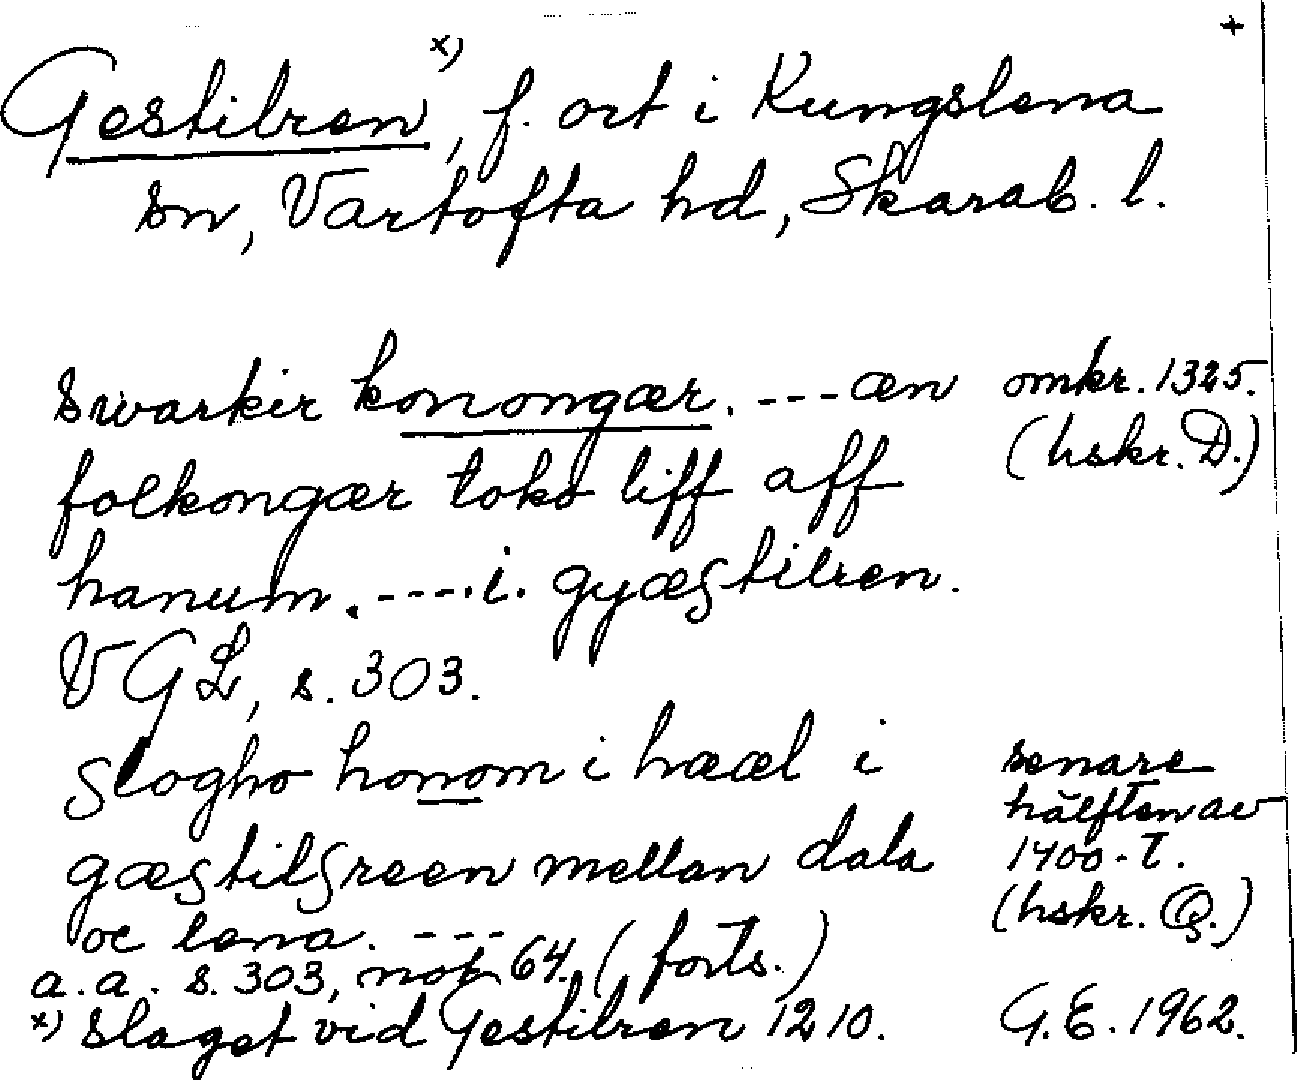 +
Gestilren x), f. ort i Kungslena
sn, Vartofta hd, Skarab. l.
Swarkir konongær. --- æn omkr. 1325.
folkongær toko liff aff (hskr. D.)
hanum. ----. i. gyæstilren.
VGL, s. 303.
slogho honom i hææl i senare
gæstilsreen mellan dala hälften av 1400-t.
oc lena. --- (hskr. Q.)
a.a. s. 303, not 64. (forts.)
x) Slaget vid Gestilren 1210. G.E. 1962.